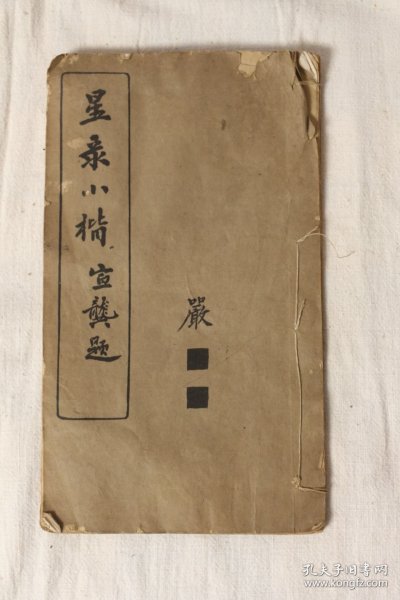 星录小楷 宣龚题
嚴
孔夫子旧书网
www.kongfz.com